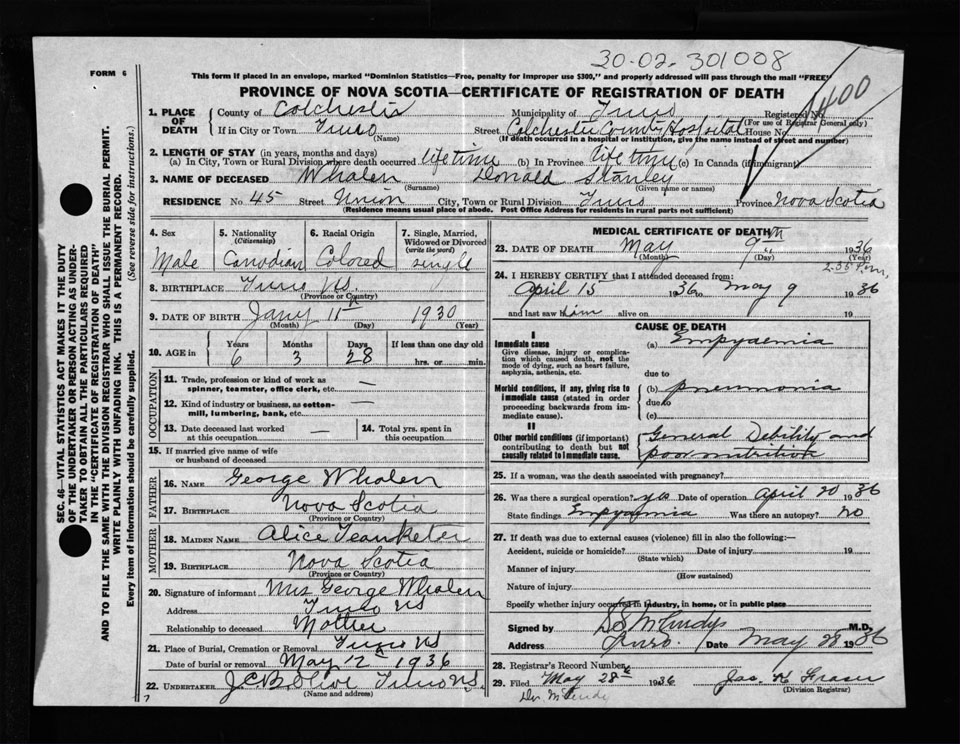 30-02-301008
FORM 6
This form if placed in an envelope, marked "Dominion Statistics—Free, penalty for improper use $300," and properly addressed will pass through the mail "FREE"
PROVINCE OF NOVA SCOTIA—CERTIFICATE OF REGISTRATION OF DEATH
1400
1. PLACE OF DEATH County of Colchester Municipality of Truro Registered No.
(For use of Registrar General only)
If in City or Town Truro Street Colchester County Hospital House No.
(Name) (If death occurred in a hospital or institution, give the name instead of street and number)
2. LENGTH OF STAY (in years, months and days)
(a) In City, Town or Rural Division where death occurred life time (b) In Province life time (c) In Canada (if immigrant)
3. NAME OF DECEASED Whalen Donald Stanley
(Surname) (Given name or names)
RESIDENCE No 45 Street Union City, Town or Rural Division Truro Province Nova Scotia
(Residence means usual place of abode. Post Office Address for residents in rural parts not sufficient)
4. Sex 5. Nationality (Citizenship) 6. Racial Origin 7. Single, Married, Widowed or Divorced (write the word)
Male Canadian Colored single
8. BIRTHPLACE Truro N.S.
(Province or Country)
9. DATE OF BIRTH Jany 11th 1930
(Month) (Day) (Year)
10. AGE in Years Months Days If less than one day old
6 3 28 hrs. or min.
OCCUPATION
11. Trade, profession or kind of work as spinner, teamster, office clerk, etc. —
12. Kind of industry or business, as cotton-mill, lumbering, bank, etc. —
13. Date deceased last worked at this occupation — 14. Total yrs. spent in this occupation
15. If married give name of wife or husband of deceased
FATHER
16. NAME George Whalen
17. BIRTHPLACE Nova Scotia
(Province or Country)
MOTHER
18. MAIDEN NAME Alice
19. BIRTHPLACE Nova Scotia
(Province or Country)
20. Signature of informant Mrs George Whalen
Address Truro NS
Relationship to deceased Mother
21. Place of Burial, Cremation or Removal Truro NS
Date of burial or removal May 12th 1936
22. UNDERTAKER J.C.B. Olive Truro N.S.
(Name and address)
MEDICAL CERTIFICATE OF DEATH
23. DATE OF DEATH May 9th 1936
(Month) (Day) (Year)
2.55 P.m.
24. I HEREBY CERTIFY that I attended deceased from:
April 15 1936 to May 9 1936
and last saw him alive on 19
CAUSE OF DEATH
I
Immediate cause
Give disease, injury or complication which caused death, not the mode of dying, such as heart failure, asphyxia, asthenia, etc.
(a) Empyaemia
due to
Morbid conditions, if any, giving rise to immediate cause (stated in order proceeding backwards from immediate cause).
(b) pneumonia
due to
(c)
II
Other morbid conditions (if important) contributing to death but not causally related to immediate cause.
General Debility and
poor nutrition
25. If a woman, was the death associated with pregnancy?
26. Was there a surgical operation? yes Date of operation April 20 1936
State findings Empyaemia Was there an autopsy? no
27. If death was due to external causes (violence) fill in also the following:—
Accident, suicide or homicide? Date of injury 19
(State which)
Manner of injury
(How sustained)
Nature of injury
Specify whether injury occurred in industry, in home, or in public place
Signed by M.D.
Address Truro. Date May 28 1936
28. Registrar's Record Number
29. Filed May 28th 1936 Jas. H Fraser
(Division Registrar)
SEC. 46—VITAL STATISTICS ACT MAKES IT THE DUTY
OF THE UNDERTAKER OR PERSON ACTING AS UNDERTAKER TO OBTAIN ALL THE PARTICULARS REQUIRED
IN THE "CERTIFICATE OF REGISTRATION OF DEATH"
AND TO FILE THE SAME WITH THE DIVISION REGISTRAR WHO SHALL ISSUE THE BURIAL PERMIT.
WRITE PLAINLY WITH UNFADING INK. THIS IS A PERMANENT RECORD.
Every item of Information should be carefully supplied. (See reverse side for instructions.)